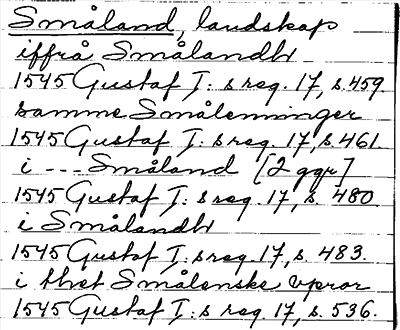 Småland, landskap
iffrå Smålandh
1545 Gustaf I: s reg. 17, s. 459.
samme Smålenninger
1545 Gustaf I: s reg. 17, s. 461.
i --- Småland [2 ggr]
1545 Gustaf I: s reg. 17, s. 480
i Smålandh
1545 Gustaf I: s reg. 17, s. 483.
i thet Smålenske vpror
1545 Gustaf I: s reg. 17, s. 536.